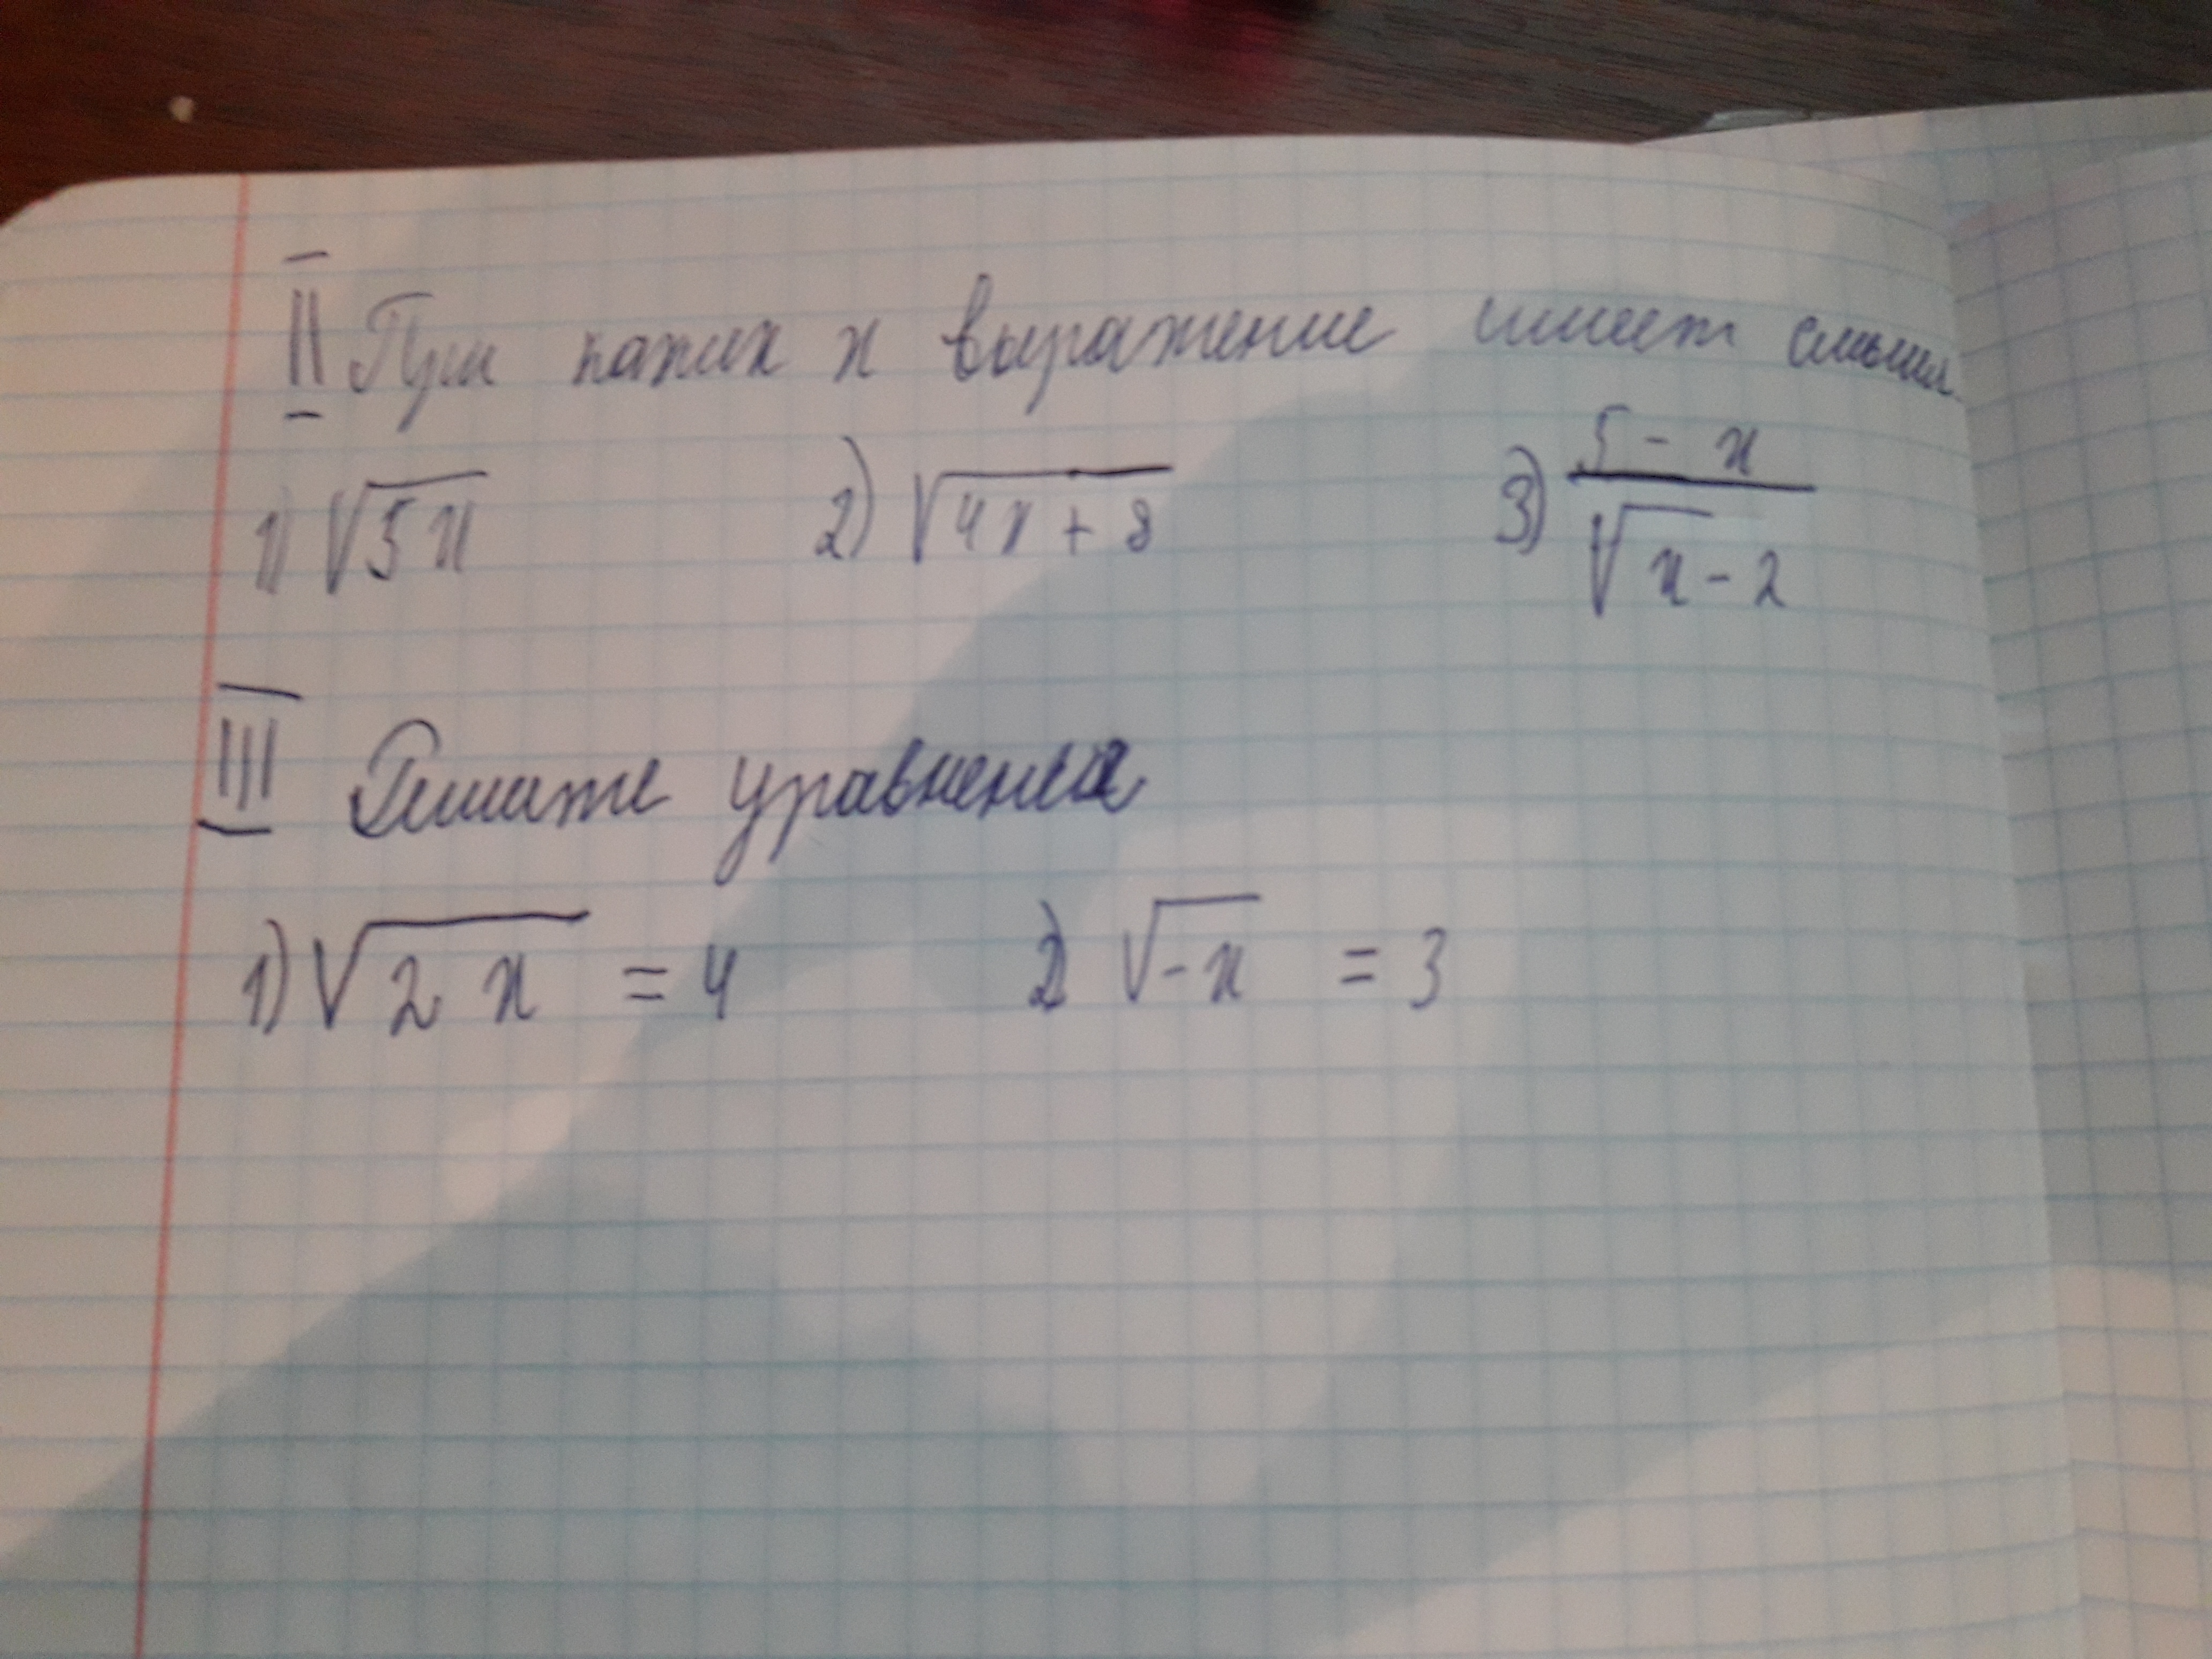 II При каких x выражение имеет смысл
1) √5x 2) √4x + 8 3) 5 - x / √x - 2
III Решите уравнения
1) √2x = 4 2) √-x = 3